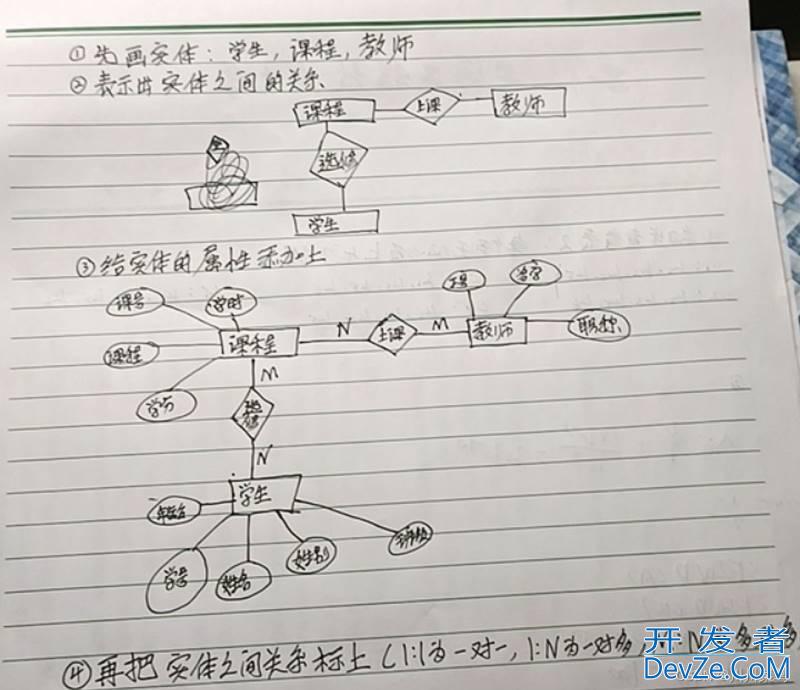 ①先画实体：学生，课程，教师
②表示出实体之间的关系
课程 上课 教师
选修
学生
③给实体的属性添加上
课号 学时
课程 N 上课 M 教师
职称
课程
M
学分
选修
N
学生
年龄
学号 姓名 性别 班级
④再把实体之间关系标上（1:1为一对一，1:N为一对多，
开发者
DevZe.CoM